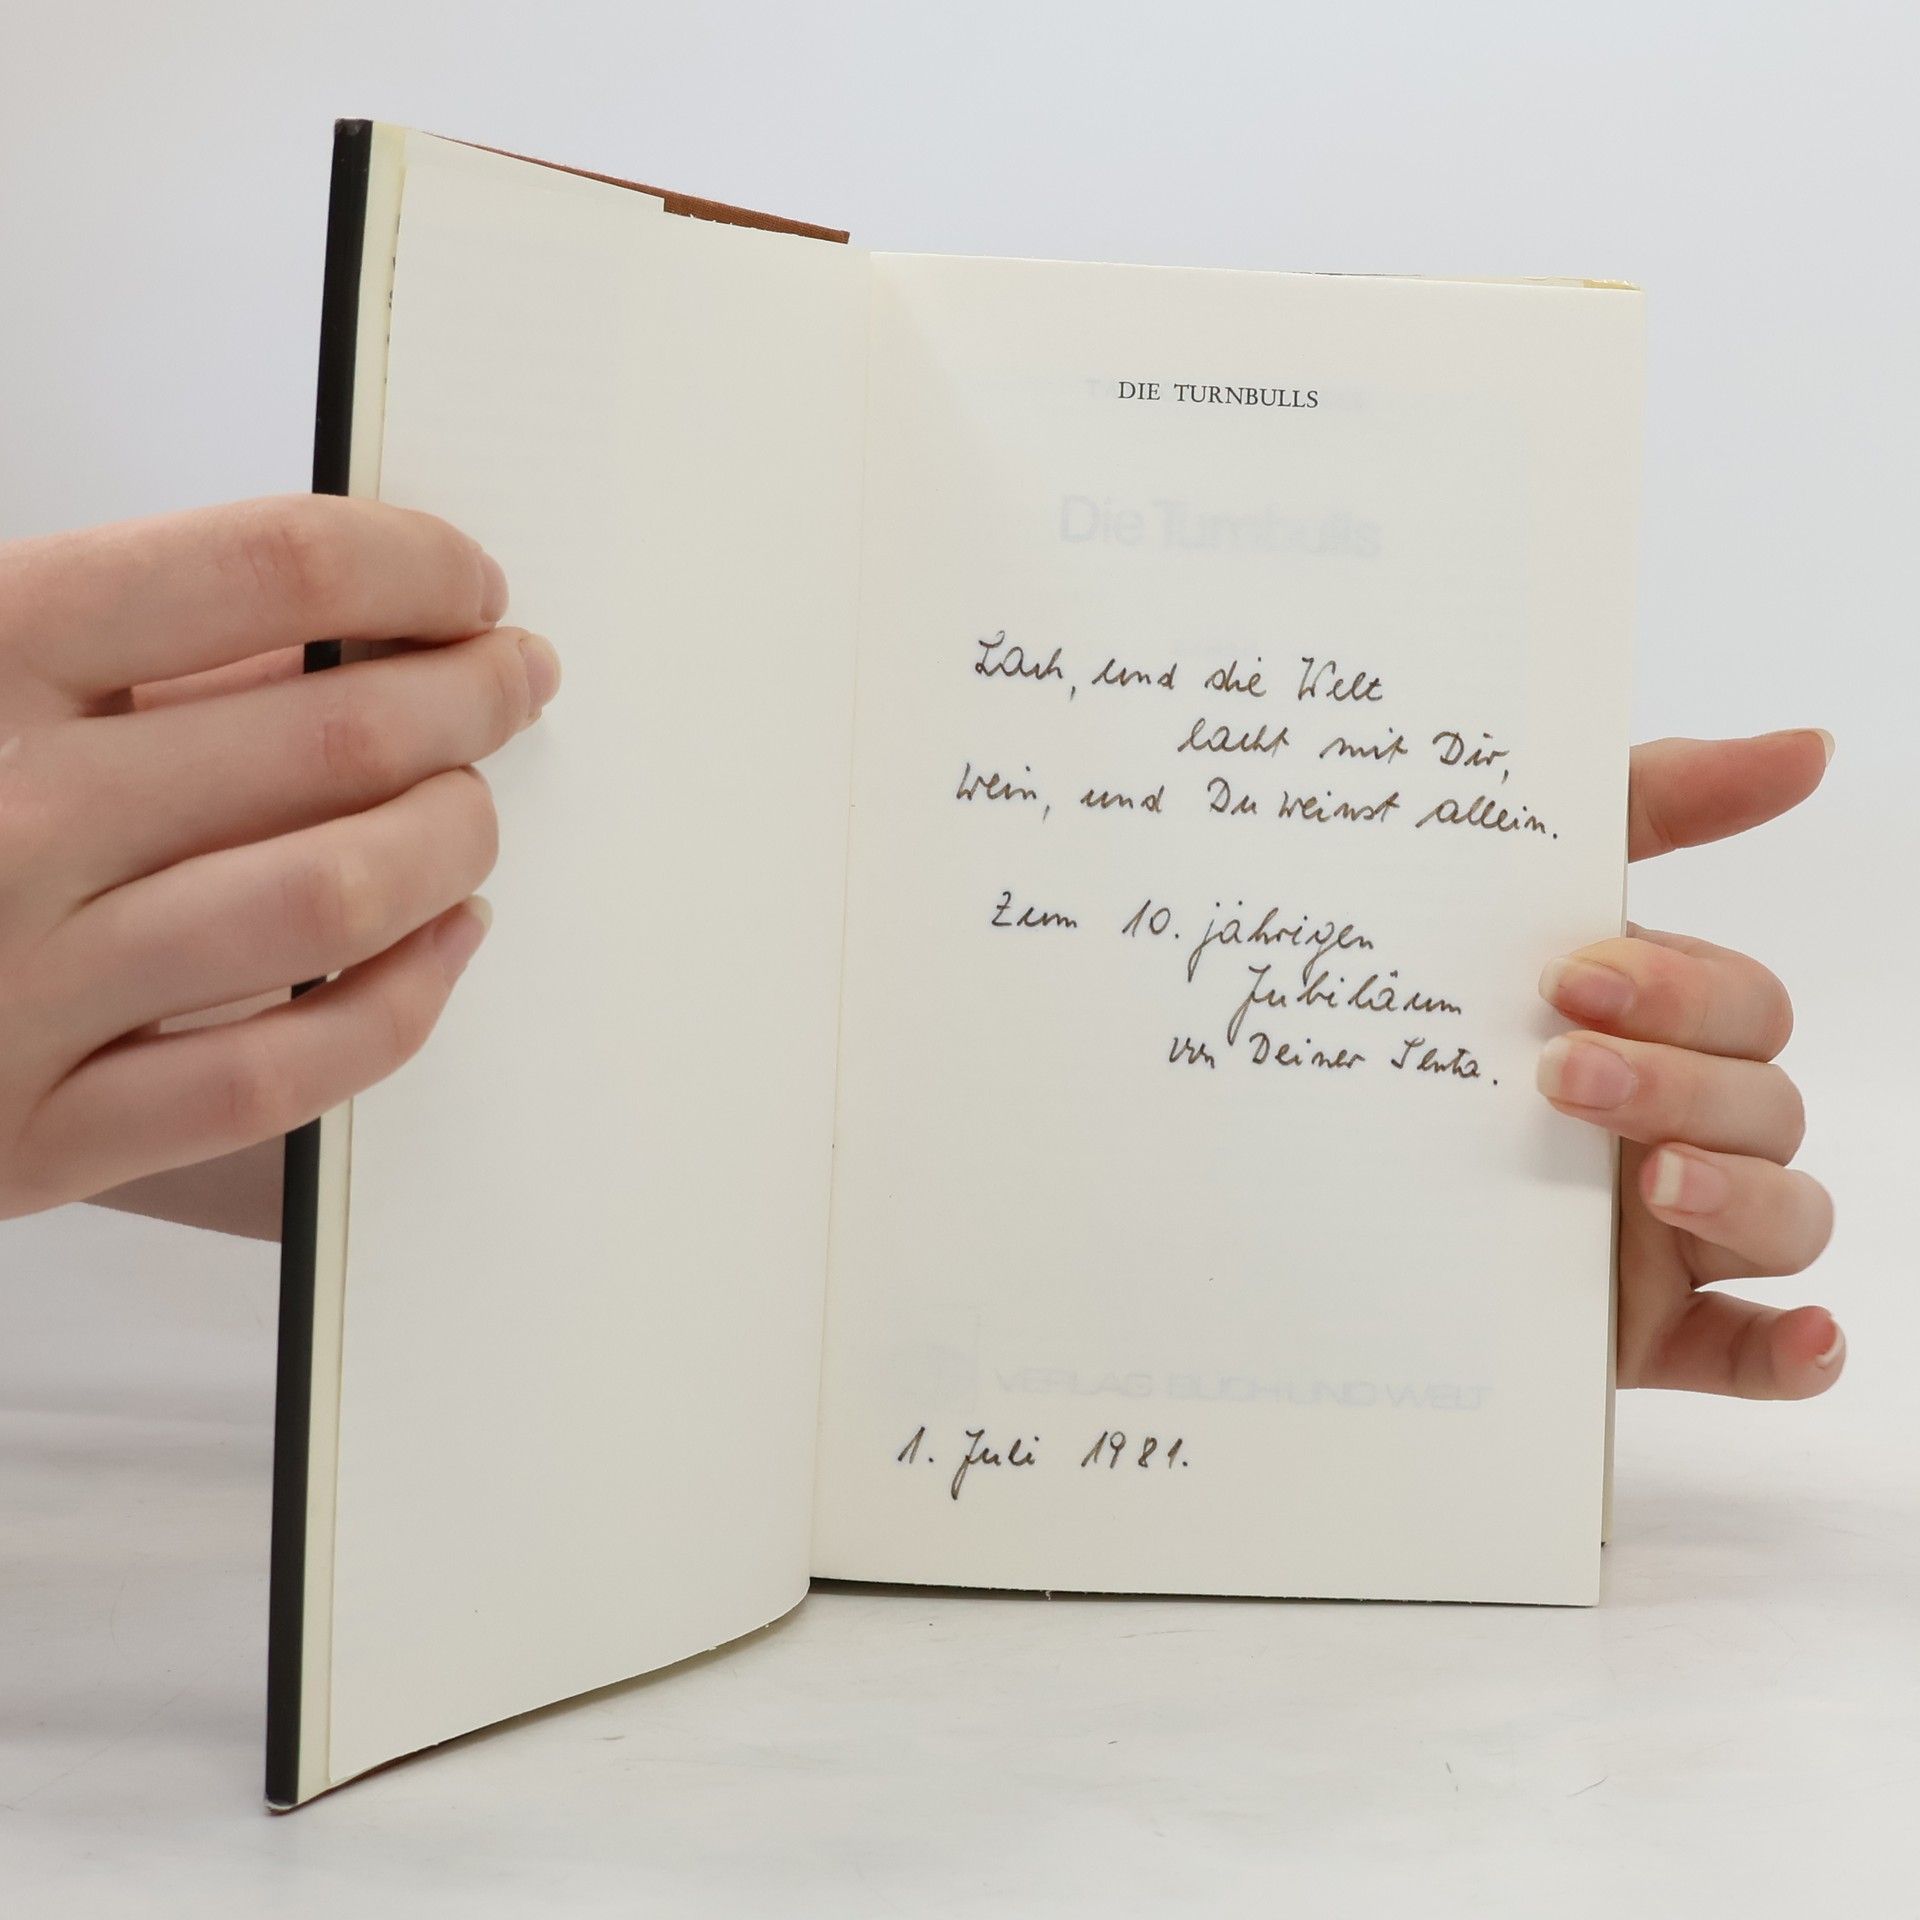 DIE TURNBULLS
Die Turnbulls
Lach, und die Welt
lacht mit Dir,
wein, und Du weinst allein.
Zum 10. jährigen
Jubiläum
von Deiner Senta.
VERLAG BUCH UND WELT
1. Juli 1981.